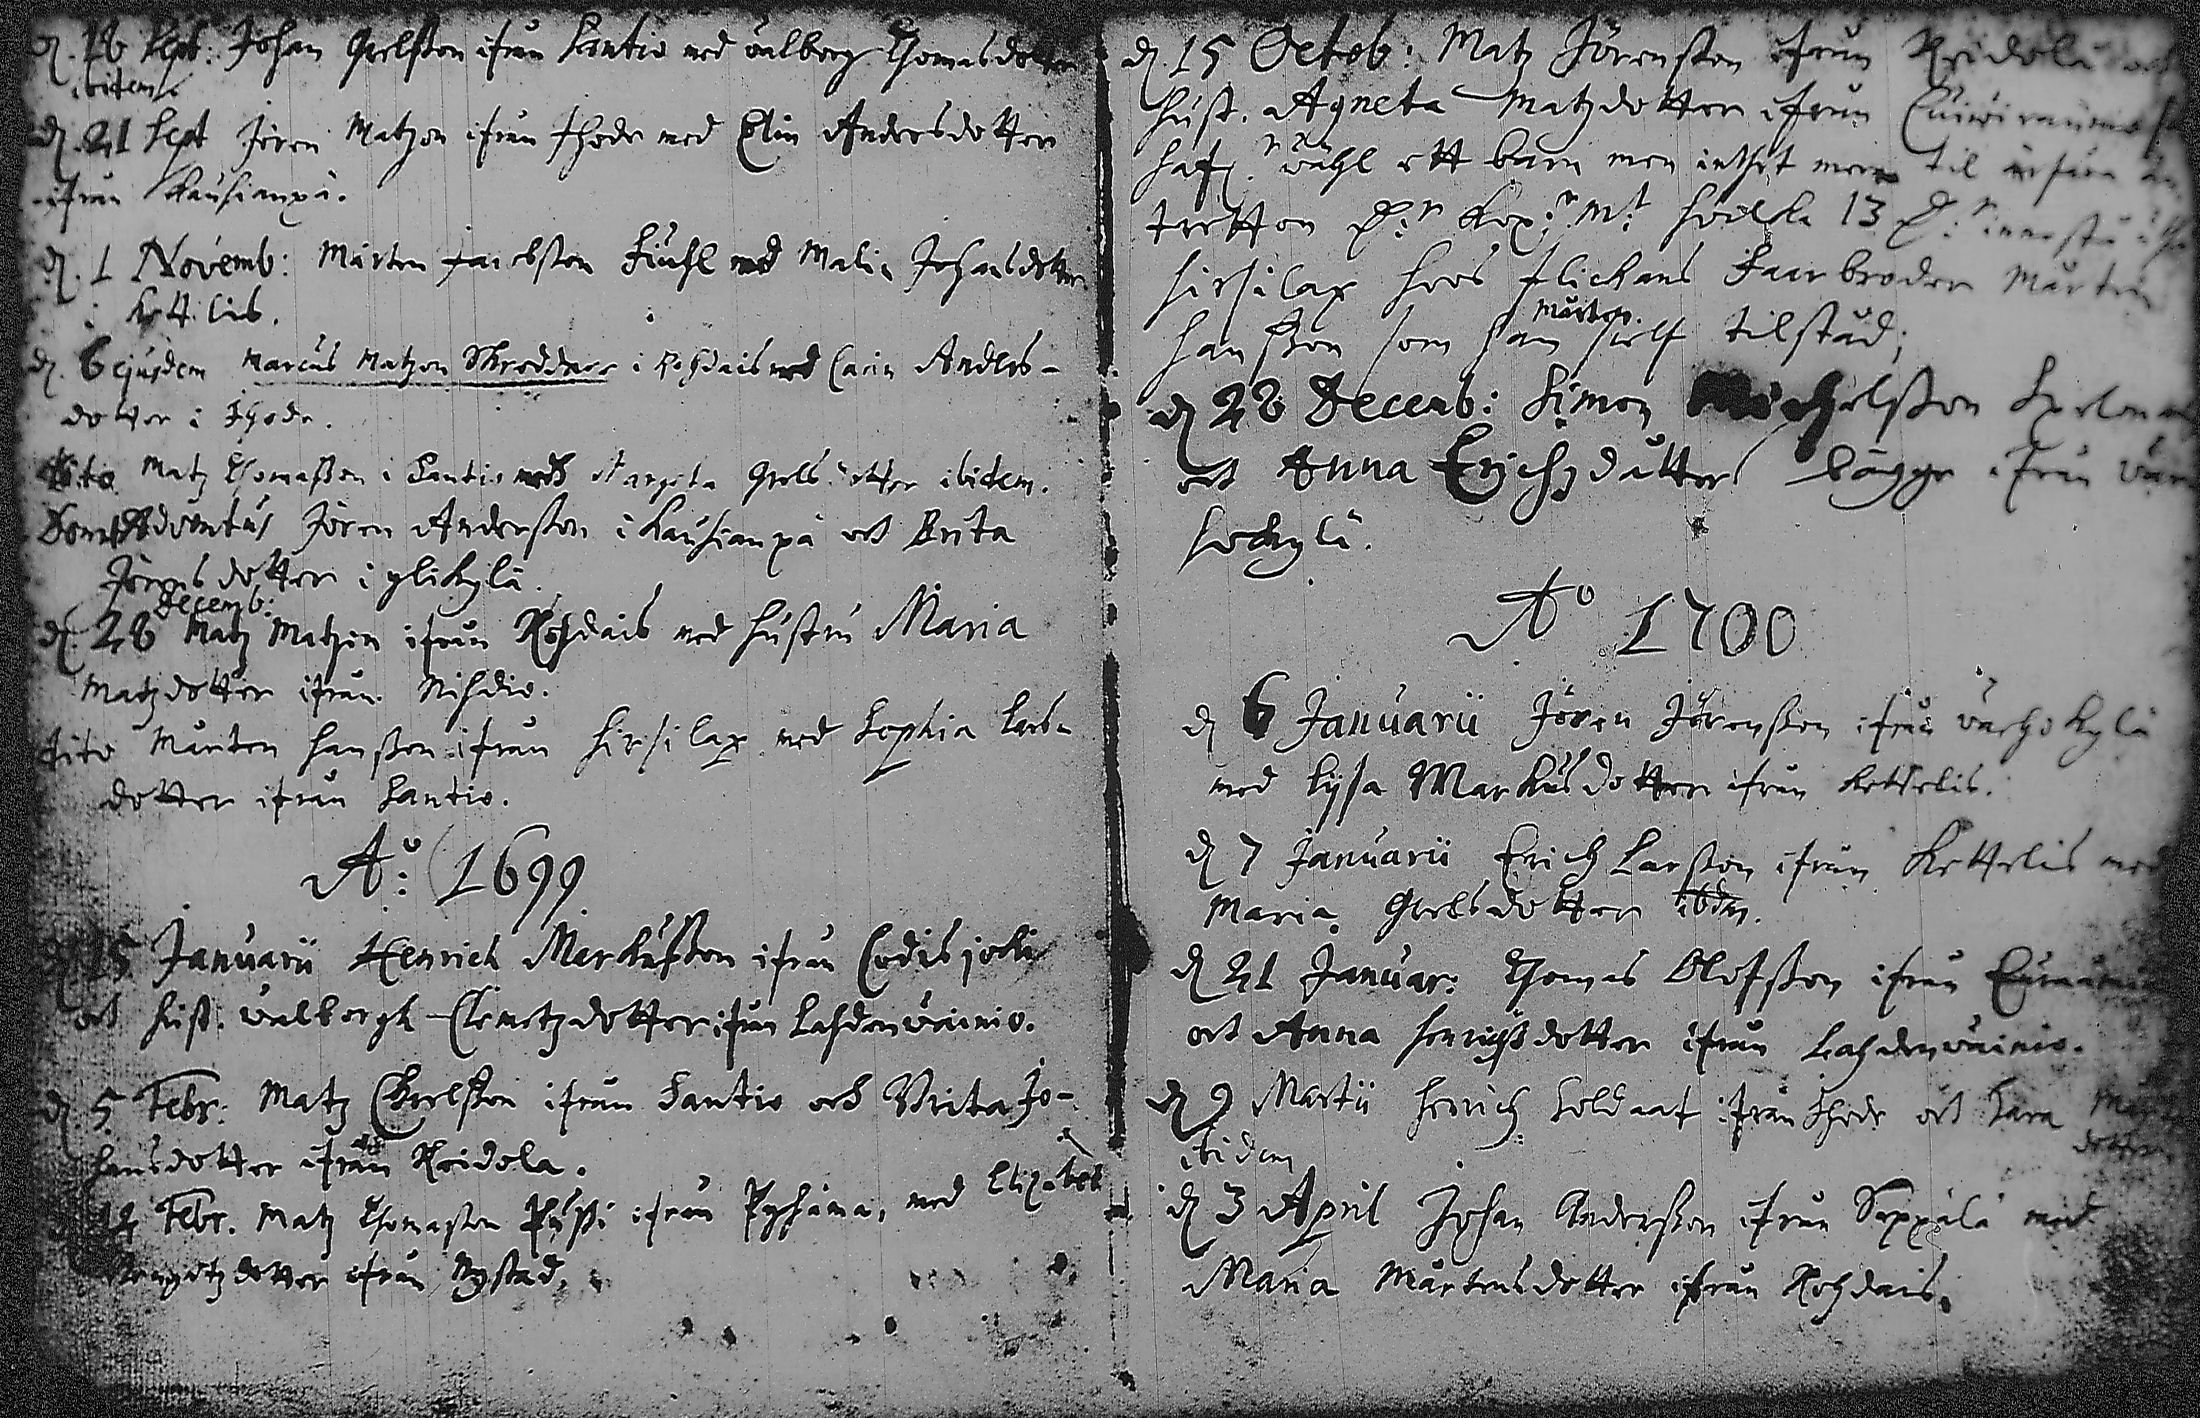 d. 18 Sept: Johan Grelsson ifrån Santio med Walborg Thomasdotter
ibidem
d. 21 Sept Jören Matzon ifrån Thode med Elin Andersdotter
ifrån Kausianpä.
d. 1 Novemb: Mårten Jacobsson med Malin Johansdotter
i Kettilis.
d. 6 ejusdem Marcus Matzon Skreddare i Kohdais med Carin Anders-
dotter i Thode.
dito Matz Thomasson i Santio med Margeta Grelsdotter ibidem.
Jören Andersson i Kausianpä och Brita
Jörensdotter i ylikylä.
Decemb:
d. 28 Matz Matzon ifrån Kohdais med hustru Maria
Matzdotter ifrån Nihdio.
dito Mårten Hansson ifrån Hirsilax med Sophia
dotter ifrån Santio.
Ao: 1699
15 Januarii Henrich Markusson ifrån Codisjoki
och hust. Walborgh Clemetzdotter ifrån Lahdenwäinio.
d. 5 Febr: Matz Grelsson ifrån Santio och Brita Jo-
hansdotter ifrån Reidola.
12 Febr. Matz Thomasson ifrån Pyhäma, med Elizabet
Bengtzdotter ifrån Nystad.
d. 15 Octob: Matz Jörensson ifrån Reidola och
hust. Agneta Matzdotter ifrån
haf. wähl ett barn men inthet mera til
tretton 13
hirsilax hoos flickans Faarbroder Mårten
Mårten.
Hansson som han sielf tilstådt;
d 28 Decemb: Simon Michelsson
och Anna Erichsdåtter bägge ifrån
Sockylä.
Ao 1700
d 6 Januarii Jören Jörensson ifrån Warhokylä
med Lysa Markusdotter ifrån Kettelis.
d 7 Januarii Erich Larsson ifrån Kettelis med
Maria Grelsdotter ibdm.
d 21 Januar: Thomas Olofsson ifrån
och Anna Henrichsdotter ifrån Lahdenwäinio.
d 9 Martii Henrich Soldaat ifrån Thode och Kara
dotter
ibidem
d 3 April Johan Andersson ifrån Seppälä med
Maria Mårtensdotter ifrån Kohdais.